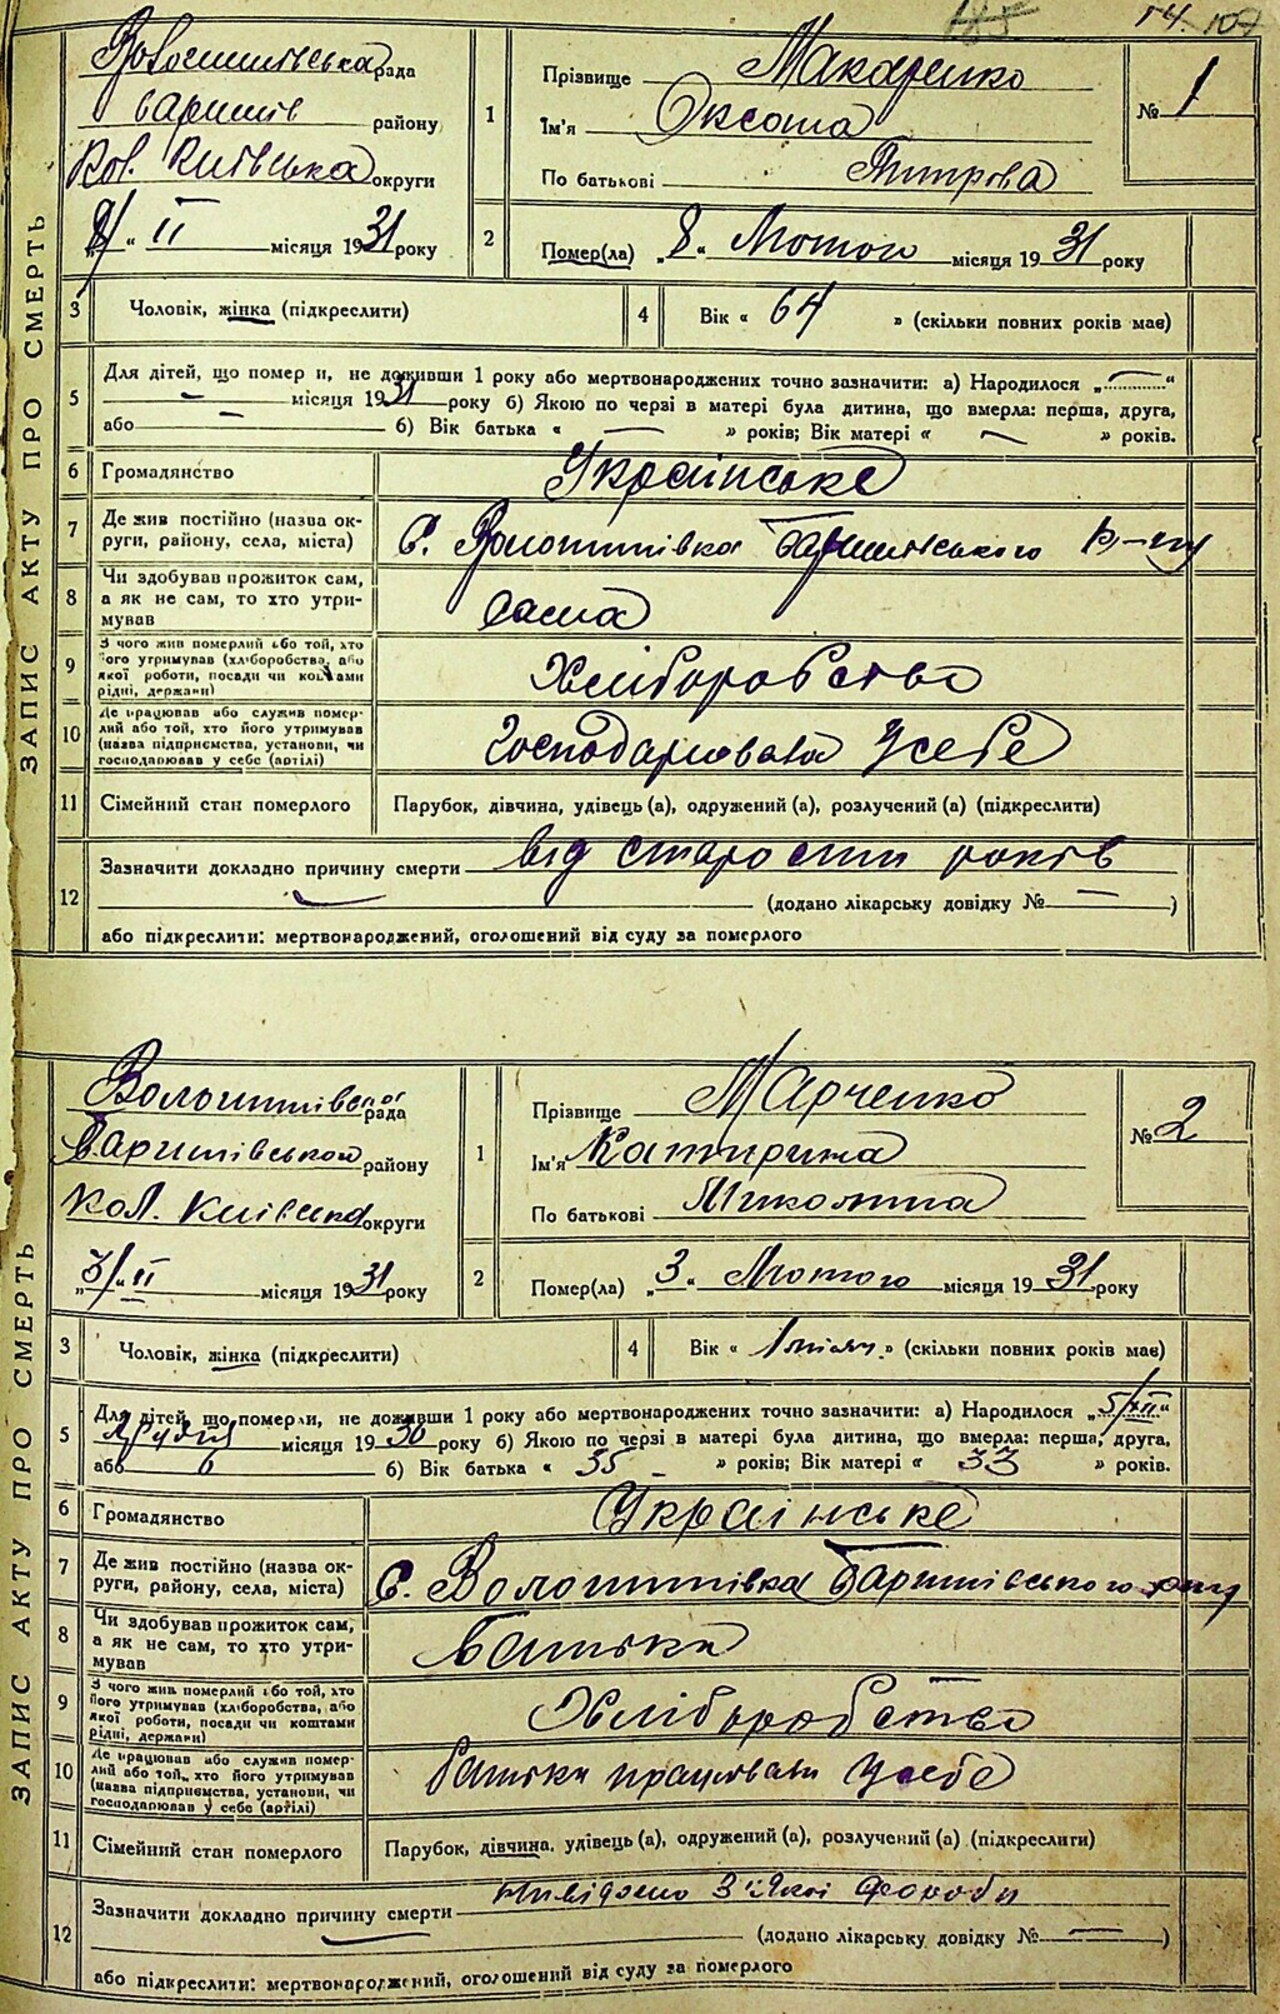 14. 107
ЗАПИС АКТУ ПРО СМЕРТЬ
Волошинівська рада
Баришів району
Кол. Київська округи
„8/“ II місяця 1931 року
1
Прізвище Макаренко
Ім'я Оксана
По батькові Дмитрова
№ 1
2
Помер(ла) „8“ Лютого місяця 1931 року
3 Чоловік, жінка (підкреслити)
4 Вік « 64 » (скільки повних років має)
5 Для дітей, що помер и, не доживши 1 року або мертвонароджених точно зазначити: а) Народилося „ — “
— місяця 1931 року б) Якою по черзі в матері була дитина, що вмерла: перша, друга,
або — б) Вік батька « — » років; Вік матері « — » років.
6 Громадянство Українське
7 Де жив постійно (назва ок-
руги, району, села, міста) С. Волошинівка Баришівського р-ну
8 Чи здобував прожиток сам,
а як не сам, то хто утри-
мував Сама
9 З чого жив померлий або той, хто
його утримував (хліборобства, або
якої роботи, посади чи коштами
рідні, держави) Хліборобство
10 Де працював або служив помер-
лий або той, хто його утримував
(назва підприємства, установи, чи
господарював у себе (артілі) Господарювала у себе
11 Сімейний стан померлого Парубок, дівчина, удівець (а), одружений (а), розлучений (а) (підкреслити)
12 Зазначити докладно причину смерти від старости років
(додано лікарську довідку № — )
або підкреслити: мертвонароджений, оголошений від суду за померлого
ЗАПИС АКТУ ПРО СМЕРТЬ
Волошинівської рада
Баришівського району
Кол. Київська округи
„3/“ II місяця 1931 року
1
Прізвище Марченко
Ім'я Катирина
По батькові Миколина
№ 2
2
Помер(ла) „3“ Лютого місяця 1931 року
3 Чоловік, жінка (підкреслити)
4 Вік « 1 місяч. » (скільки повних років має)
5 Для дітей, що померли, не доживши 1 року або мертвонароджених точно зазначити: а) Народилося „5/XII“
Грудня місяця 1930 року б) Якою по черзі в матері була дитина, що вмерла: перша, друга,
або 6 б) Вік батька « 35 » років; Вік матері « 33 » років.
6 Громадянство Українське
7 Де жив постійно (назва ок-
руги, району, села, міста) С. Волошинівка Баришівського р-ну
8 Чи здобував прожиток сам,
а як не сам, то хто утри-
мував Батьки
9 З чого жив померлий або той, хто
його утримував (хліборобства, або
якої роботи, посади чи коштами
рідні, держави) Хліборобство
10 Де працював або служив помер-
лий або той, хто його утримував
(назва підприємства, установи, чи
господарював у себе (артілі) батьки працювали у себе
11 Сімейний стан померлого Парубок, дівчина, удівець (а), одружений (а), розлучений (а) (підкреслити)
12 Зазначити докладно причину смерти невідомо з якої хороби
(додано лікарську довідку № — )
або підкреслити: мертвонароджений, оголошений від суду за померлого